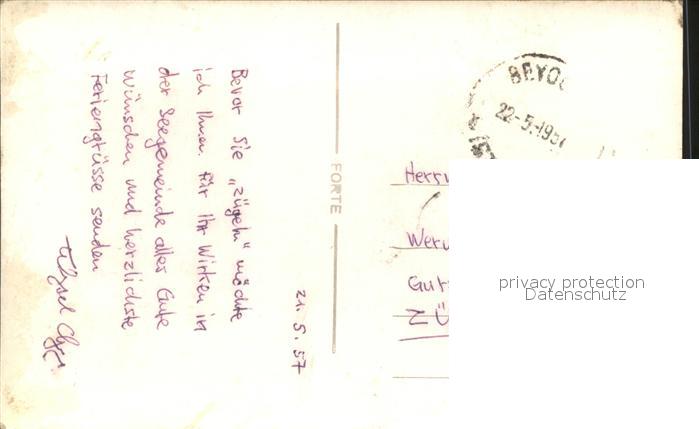 21. 5. 57
Bevor Sie „zügeln" möchte
ich Ihnen für Ihr Wirken in
der Seegemeinde alles Gute
wünschen und herzlichste
Feriengrüsse senden
FORTE
BEYO
22-5-195
Herr
Wer
Gut
NÜ
privacy protection
Datenschutz